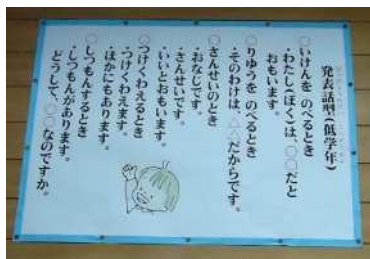 発表話型(低学年)
○いけんを のべるとき
・わたし(ぼく)は、○○だと
おもいます。
○りゆうを のべるとき
・そのわけは、△△だからです。
○さんせいのとき
・おなじです。
・さんせいです。
・いいとおもいます。
○つけくわえるとき
・つけくわえます。
・ほかにもあります。
○しつもんするとき
・しつもんがあります。
どうして、○○なのですか。